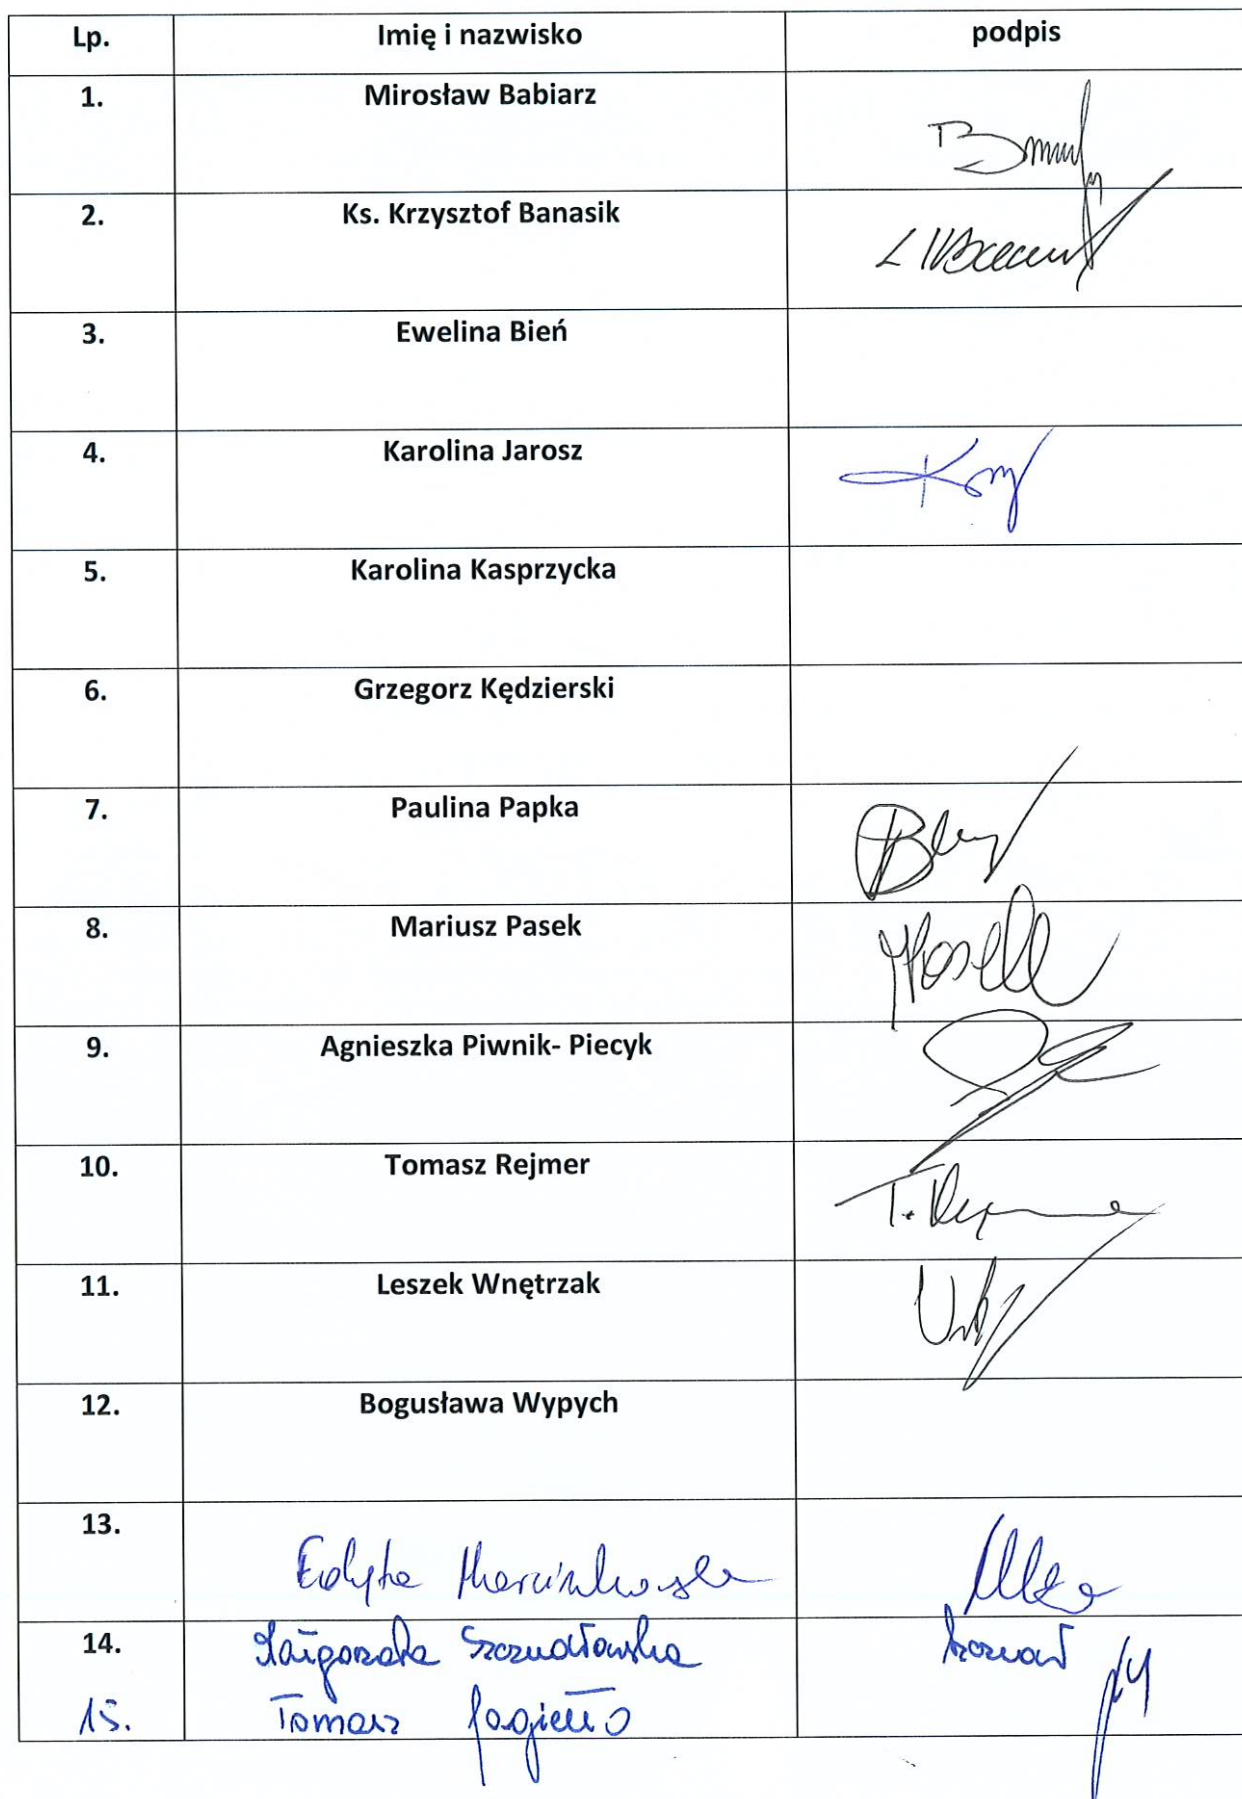 Lp. Imię i nazwisko podpis
1. Mirosław Babiarz
2. Ks. Krzysztof Banasik
3. Ewelina Bień
4. Karolina Jarosz
5. Karolina Kasprzycka
6. Grzegorz Kędzierski
7. Paulina Papka
8. Mariusz Pasek
9. Agnieszka Piwnik- Piecyk
10. Tomasz Rejmer
11. Leszek Wnętrzak
12. Bogusława Wypych
13. Edyta Marcinkowska
14. Małgorzata Szczudłowska
15. Tomasz Jagiełło